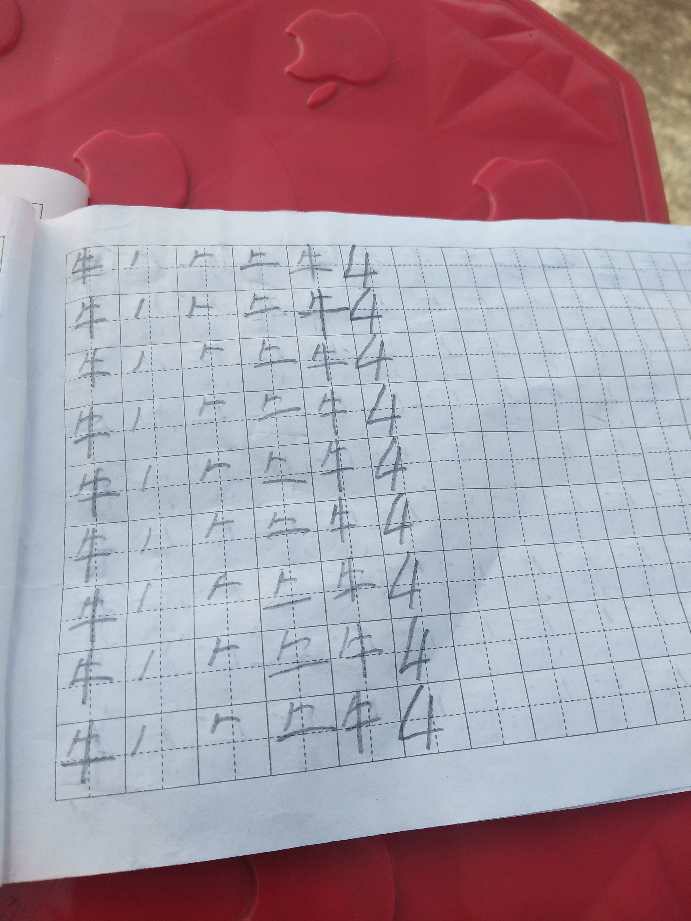 牛 丿 𠂉 ⺧ 牛 4
牛 丿 𠂉 ⺧ 牛 4
牛 丿 𠂉 ⺧ 牛 4
牛 丿 𠂉 ⺧ 牛 4
牛 丿 𠂉 ⺧ 牛 4
牛 丿 𠂉 ⺧ 牛 4
牛 丿 𠂉 ⺧ 牛 4
牛 丿 𠂉 ⺧ 牛 4
牛 丿 𠂉 ⺧ 牛 4